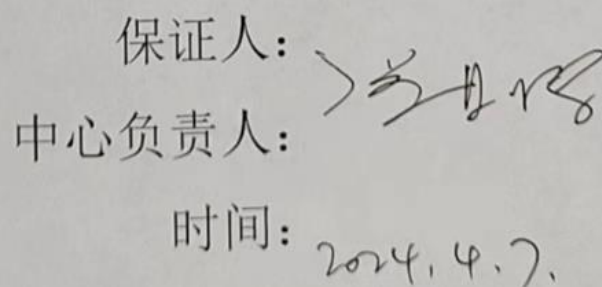 保证人：
中心负责人：
时间：2024.4.7.